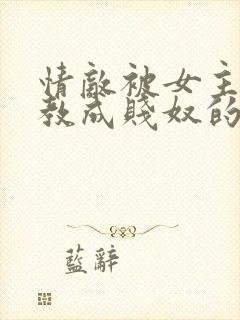 情敵被女主
教成賤奴的
藍辭